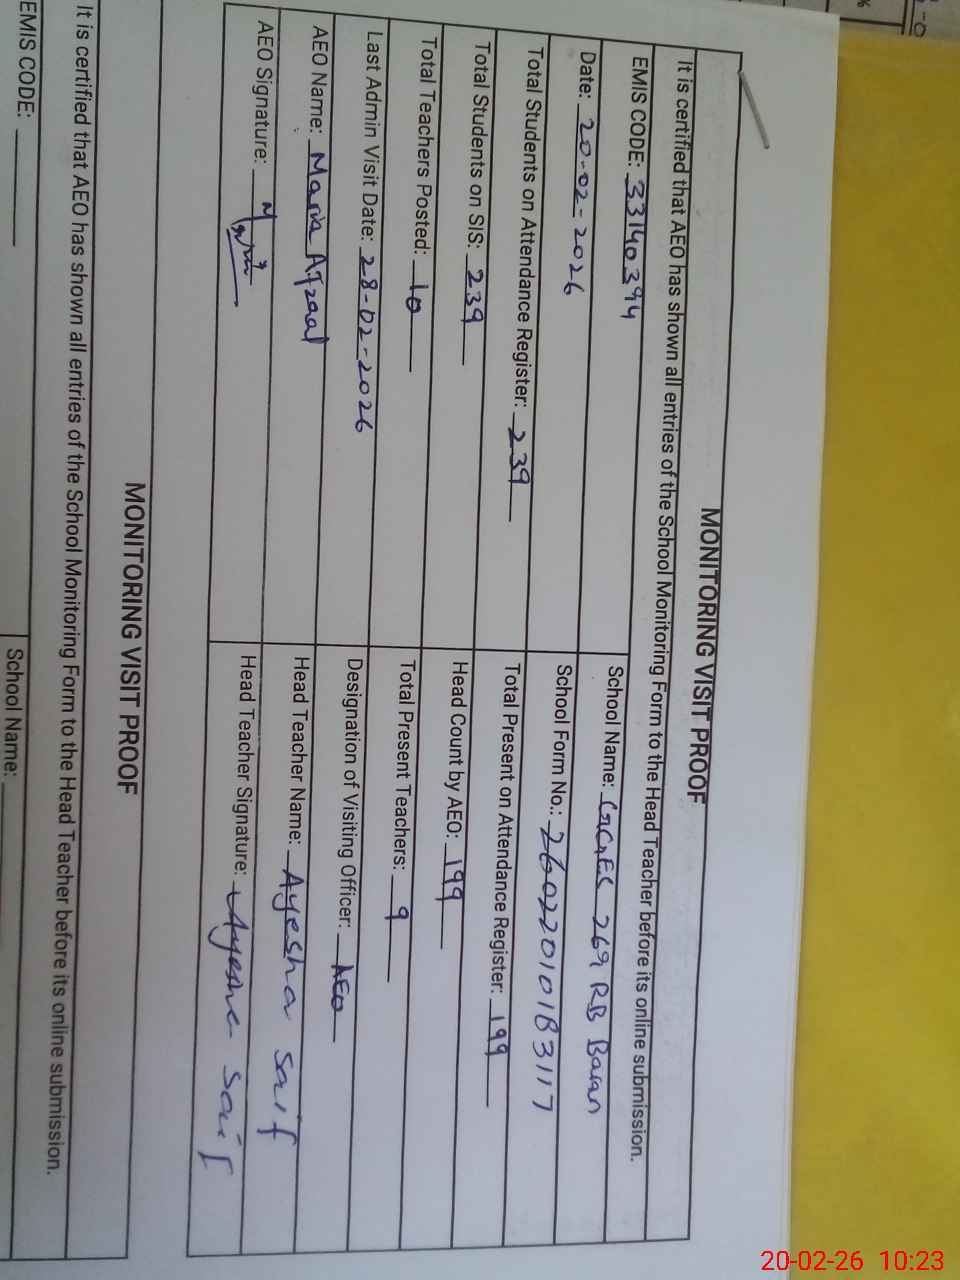 MONITORING VISIT PROOF
It is certified that AEO has shown all entries of the School Monitoring Form to the Head Teacher before its online submission.
EMIS CODE: 33140394
School Name: GGES 269 RB Baran
Date: 20-02-2026
School Form No.: 26022010183117
Total Students on Attendance Register: 239
Total Present on Attendance Register: 199
Total Students on SIS: 239
Head Count by AEO: 199
Total Teachers Posted: 10
Total Present Teachers: 9
Last Admin Visit Date: 28-02-2026
Designation of Visiting Officer: AEO
AEO Name: Maria Afzaal
Head Teacher Name: Ayesha saif
AEO Signature:
Head Teacher Signature: Ayesha saif
MONITORING VISIT PROOF
It is certified that AEO has shown all entries of the School Monitoring Form to the Head Teacher before its online submission.
EMIS CODE:
School Name:
20-02-26 10:23